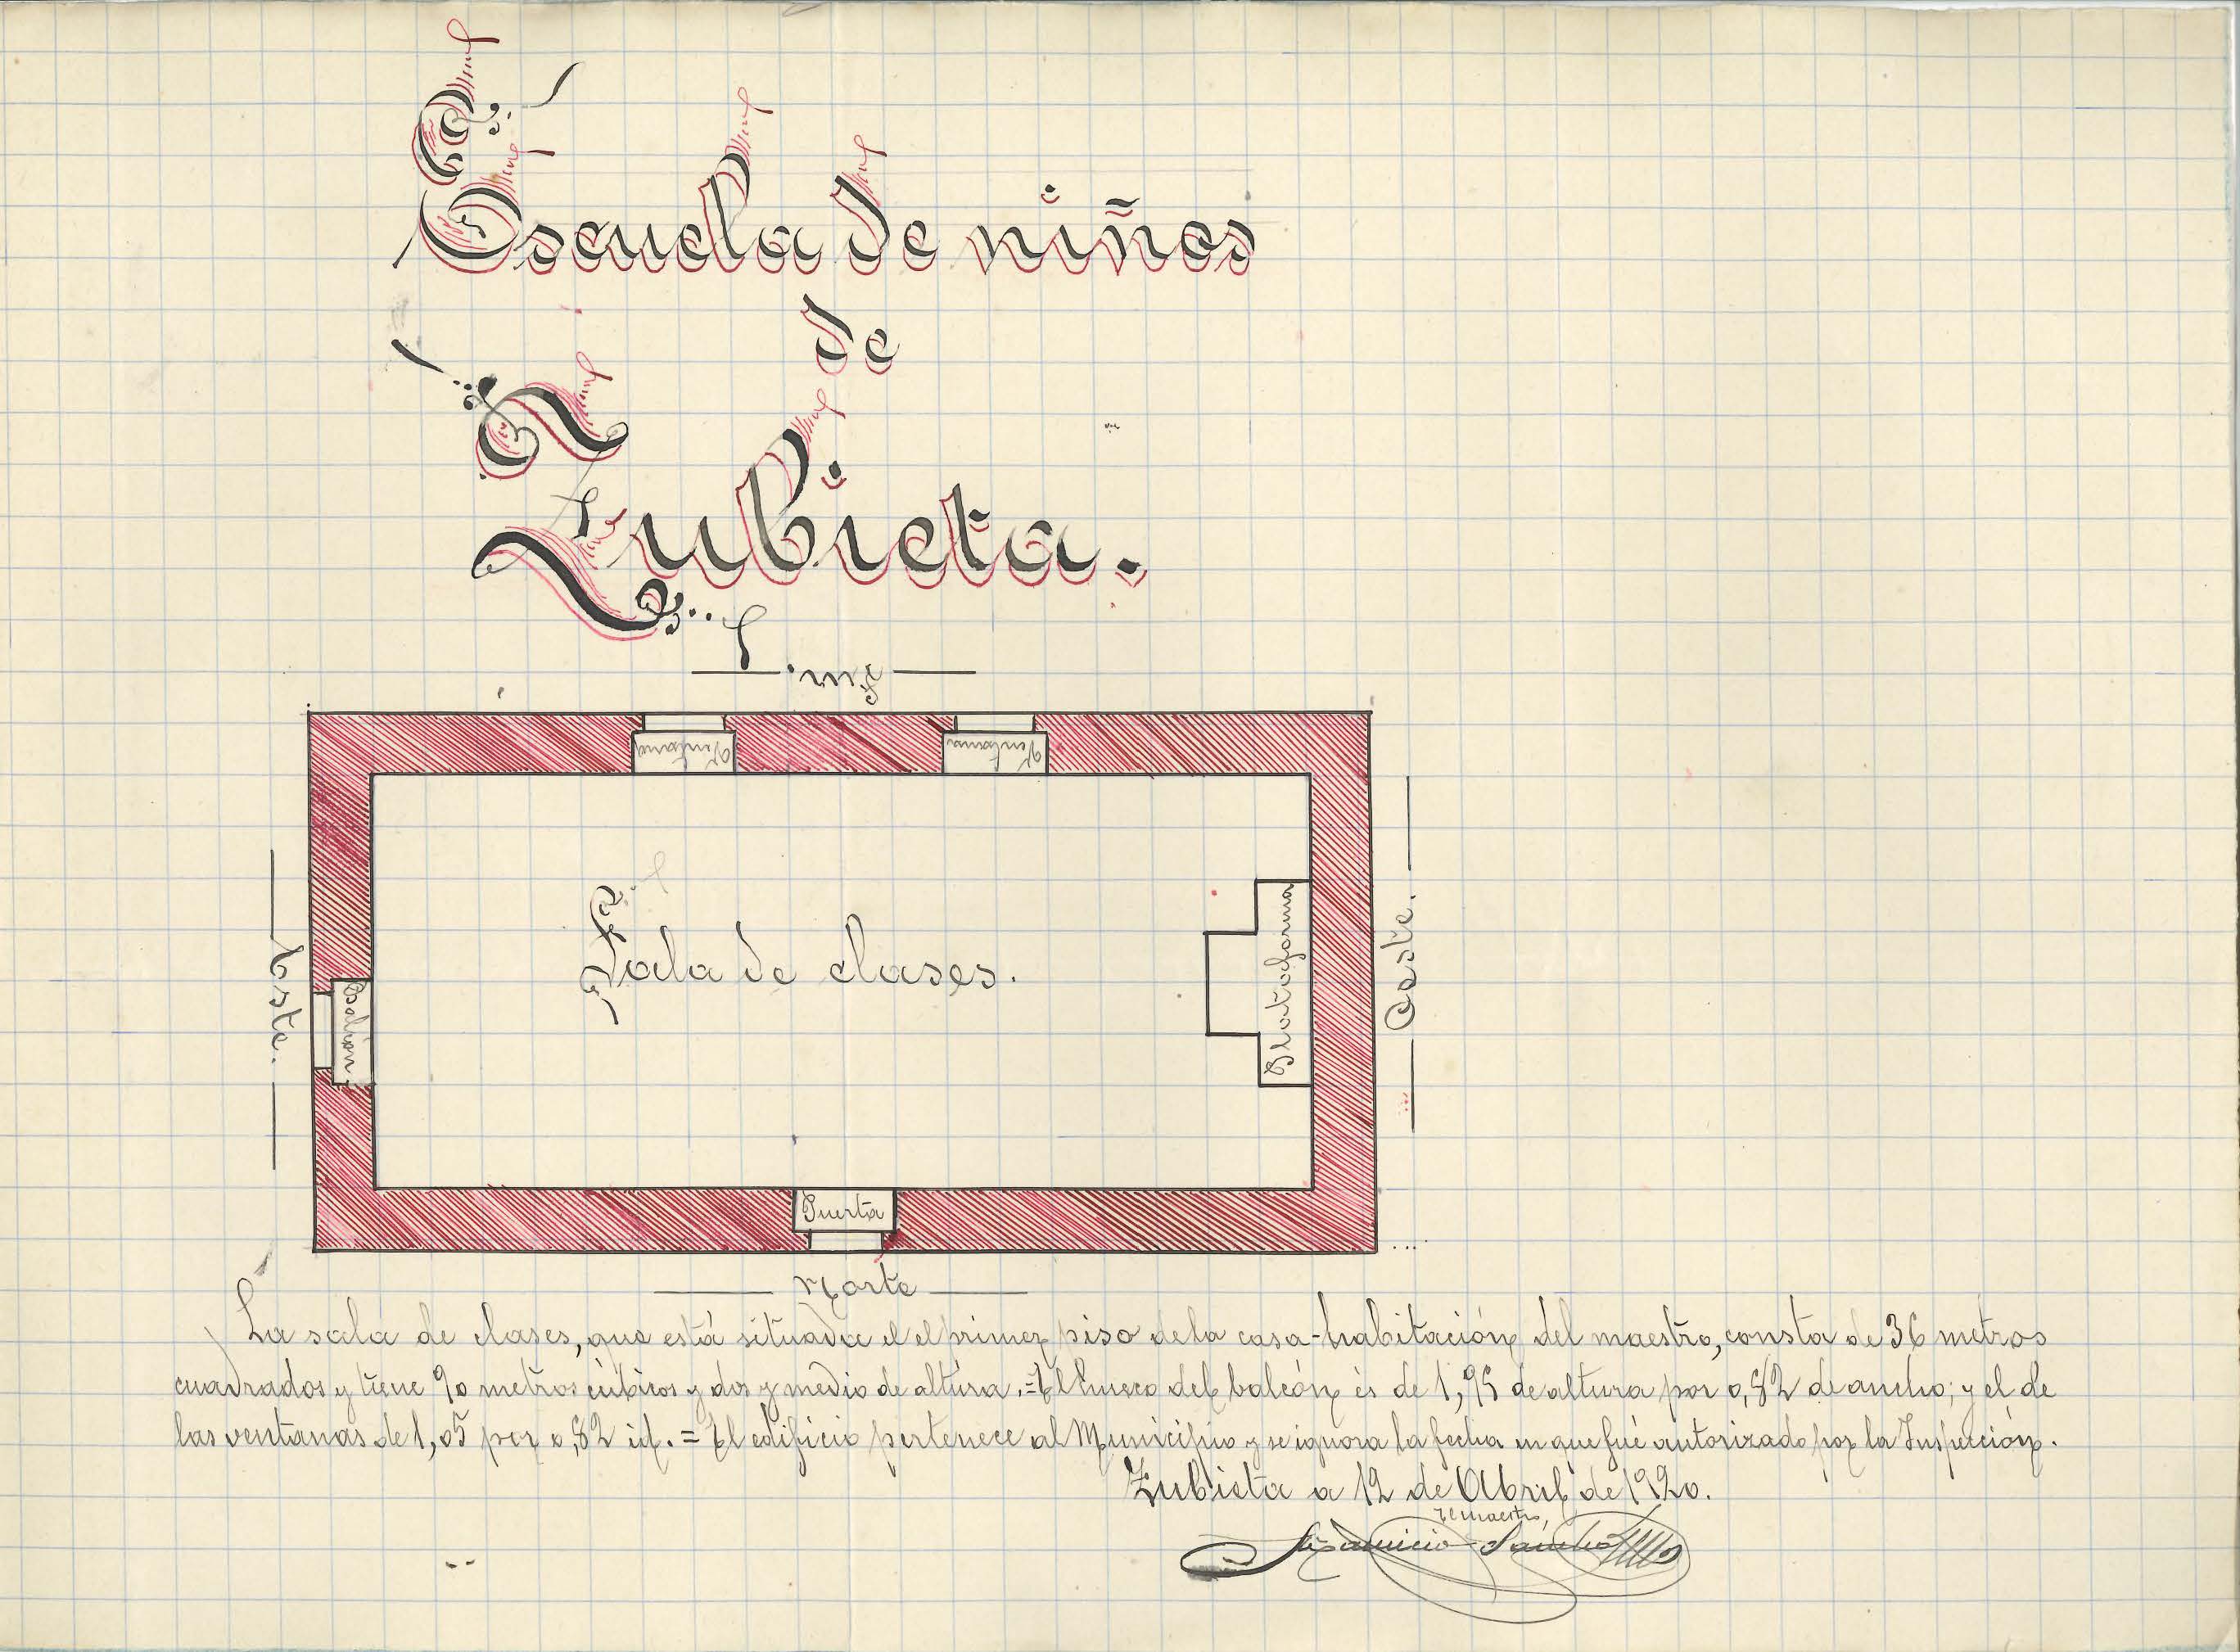 Escuela de niños
de
Zubieta.
Sur.
Ventana
Ventana
Este.
Balcón.
Sala de clases.
Plataforma
Oeste.
Puerta
Norte
La sala de clases, que está situada el el primer piso de la casa-habitación del maestro, consta de 36 metros
cuadrados y tiene 90 metros cúbicos y dos y medio de altura. = El hueco del balcón és de 1,95 de altura por 0,82 de ancho; y el de
las ventanas de 1,05 por 0,82 id. = El edificio pertenece al Municipio y se ignora la fecha en que fué autorizado por la Inspección.
Zubieta a 12 de Abril de 1920.
El maestro,
Sancho